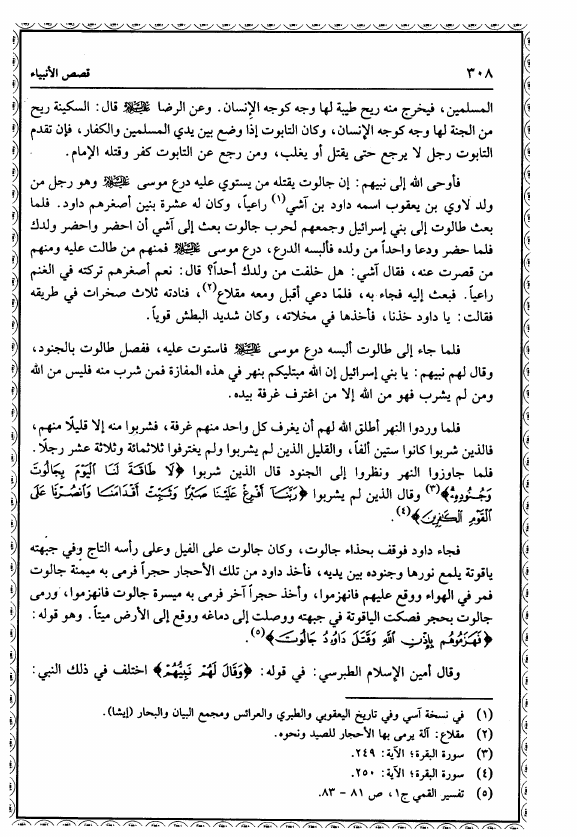 ٣٠٨
قصص الأنبياء
المسلمين، فيخرج منه ريح طيبة لها وجه كوجه الإنسان. وعن الرضا عليه السلام قال: السكينة ريح
من الجنة لها وجه كوجه الإنسان، وكان التابوت إذا وضع بين يدي المسلمين والكفار، فإن تقدم
التابوت رجل لا يرجع حتى يقتل أو يغلب، ومن رجع عن التابوت كفر وقتله الإمام.
فأوحى الله إلى نبيهم: إن جالوت يقتله من يستوي عليه درع موسى عليه السلام وهو رجل من
ولد لاوي بن يعقوب اسمه داود بن آشي(١) راعياً، وكان له عشرة بنين أصغرهم داود. فلما
بعث طالوت إلى بني إسرائيل وجمعهم لحرب جالوت بعث إلى آشي أن احضر واحضر ولدك
فلما حضر ودعا واحداً من ولده فألبسه الدرع، درع موسى عليه السلام فمنهم من طالت عليه ومنهم
من قصرت عنه، فقال آشي: هل خلفت من ولدك أحداً؟ قال: نعم أصغرهم تركته في الغنم
راعياً. فبعث إليه فجاء به، فلمّا دعي أقبل ومعه مقلاع(٢)، فنادته ثلاث صخرات في طريقه
فقالت: يا داود خذنا، فأخذها في مخلاته، وكان شديد البطش قوياً.
فلما جاء إلى طالوت ألبسه درع موسى عليه السلام فاستوت عليه، ففصل طالوت بالجنود،
وقال لهم نبيهم: يا بني إسرائيل إن الله مبتليكم بنهر في هذه المفازة فمن شرب منه فليس من الله
ومن لم يشرب فهو من الله إلا من اغترف غرفة بيده.
فلما وردوا النهر أطلق الله لهم أن يغرف كل واحد منهم غرفة، فشربوا منه إلا قليلًا منهم،
فالذين شربوا كانوا ستين ألفاً، والقليل الذين لم يشربوا ولم يغترفوا ثلاثمائة وثلاثة عشر رجلًا.
فلما جاوزوا النهر ونظروا إلى الجنود قال الذين شربوا ﴿لَا طَاقَةَ لَنَا اليَوْمَ بِجَالُوتَ
وَجُنُودِهِ﴾(٣) وقال الذين لم يشربوا ﴿رَبَّنَا أَفْرِغْ عَلَيْنَا صَبْرًا وَثَبِّتْ أَقْدَامَنَا وَانْصُرْنَا عَلَى
القَوْمِ الكَافِرِينَ﴾(٤).
فجاء داود فوقف بحذاء جالوت، وكان جالوت على الفيل وعلى رأسه التاج وفي جبهته
ياقوتة يلمع نورها وجنوده بين يديه، فأخذ داود من تلك الأحجار حجراً فرمى به ميمنة جالوت
فمر في الهواء ووقع عليهم فانهزموا، وأخذ حجراً آخر فرمى به ميسرة جالوت فانهزموا، ورمى
جالوت بحجر فصكت الياقوتة في جبهته ووصلت إلى دماغه ووقع إلى الأرض ميتاً. وهو قوله:
﴿فَهَزَمُوهُم بِإِذْنِ اللَّهِ وَقَتَلَ دَاوُدُ جَالُوتَ﴾(٥).
وقال أمين الإسلام الطبرسي: في قوله: ﴿وَقَالَ لَهُمْ نَبِيُّهُمْ﴾ اختلف في ذلك النبي:
(١) في نسخة آسي وفي تاريخ اليعقوبي والطبري والعرائس ومجمع البيان والبحار (إيشا).
(٢) مقلاع: آلة يرمى بها الأحجار للصيد ونحوه.
(٣) سورة البقرة؛ الآية: ٢٤٩.
(٤) سورة البقرة؛ الآية: ٢٥٠.
(٥) تفسير القمي ج١، ص ٨١ – ٨٣.